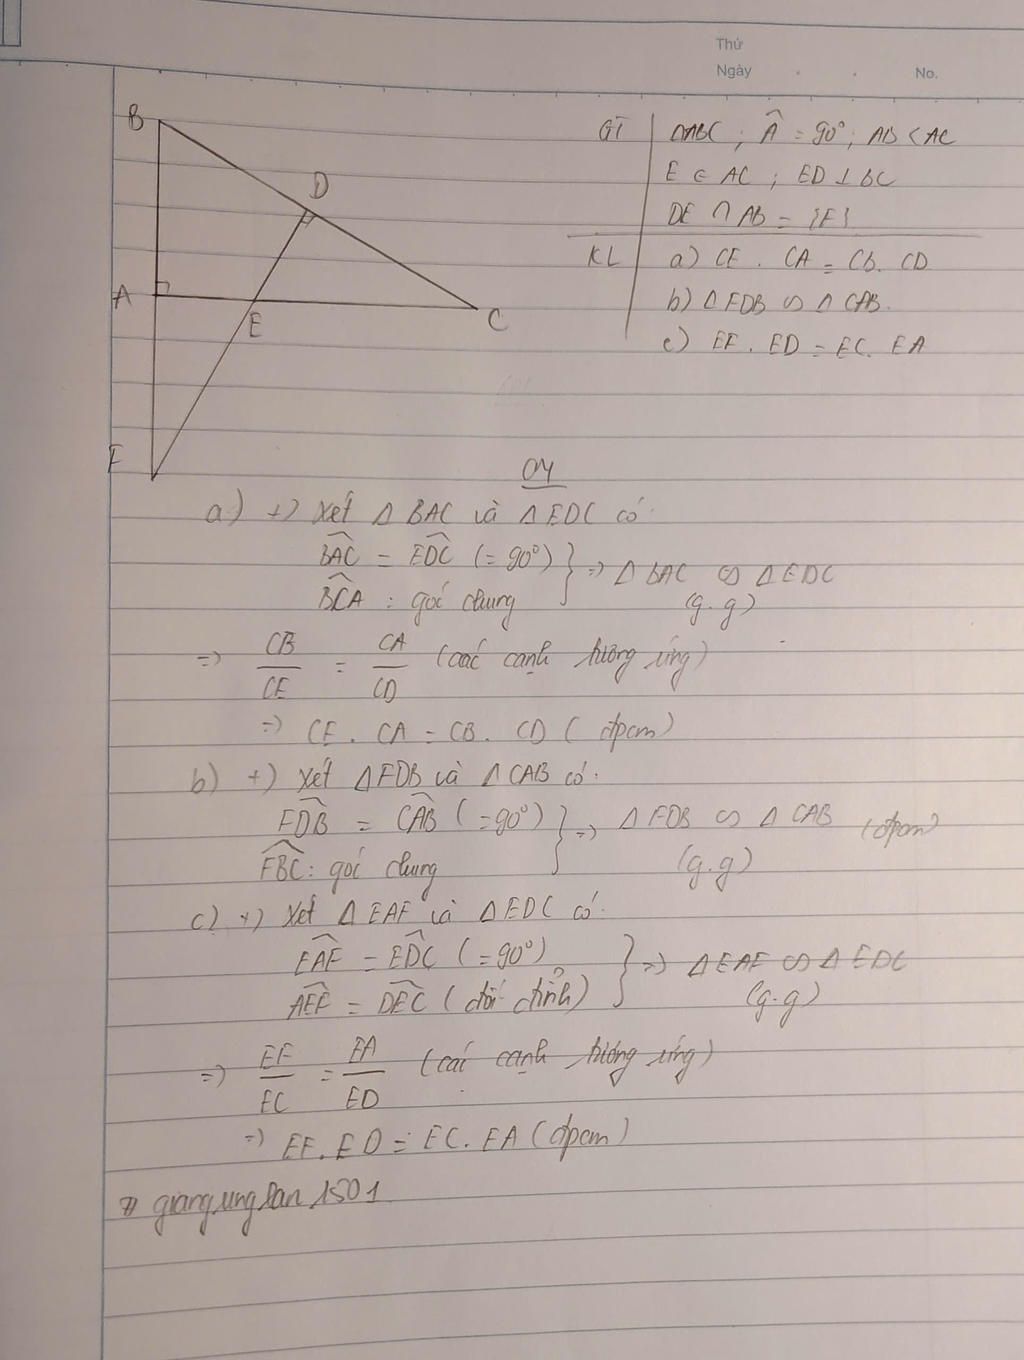 Thứ
Ngày . . No.
B
D
A
E
C
F
GT ΔABC ; Â = 90° ; AB < AC
E ∈ AC ; ED ⊥ BC
DE ∩ AB = {F}
KL a) CE . CA = CB . CD
b) ΔFDB ∽ ΔCAB.
c) EF . ED = EC . EA
a) +) Xét Δ BAC và Δ EDC có:
BAC = EDC (= 90°)
BCA : góc chung
} => Δ BAC ∽ Δ EDC
(g.g)
=> CB/CE = CA/CD (các cạnh tương ứng)
=> CE . CA = CB . CD ( đpcm)
b) +) Xét ΔFDB và ΔCAB có:
FDB = CAB (= 90°)
FBC : góc chung
} => Δ FDB ∽ Δ CAB (đpcm)
(g.g)
c) +) Xét Δ EAF và Δ EDC có:
EAF = EDC (= 90°)
AEF = DEC ( đối đỉnh)
} => Δ EAF ∽ Δ EDC
(g.g)
=> EF/EC = EA/ED (các cạnh tương ứng)
=> EF . ED = EC . EA (đpcm)
1501